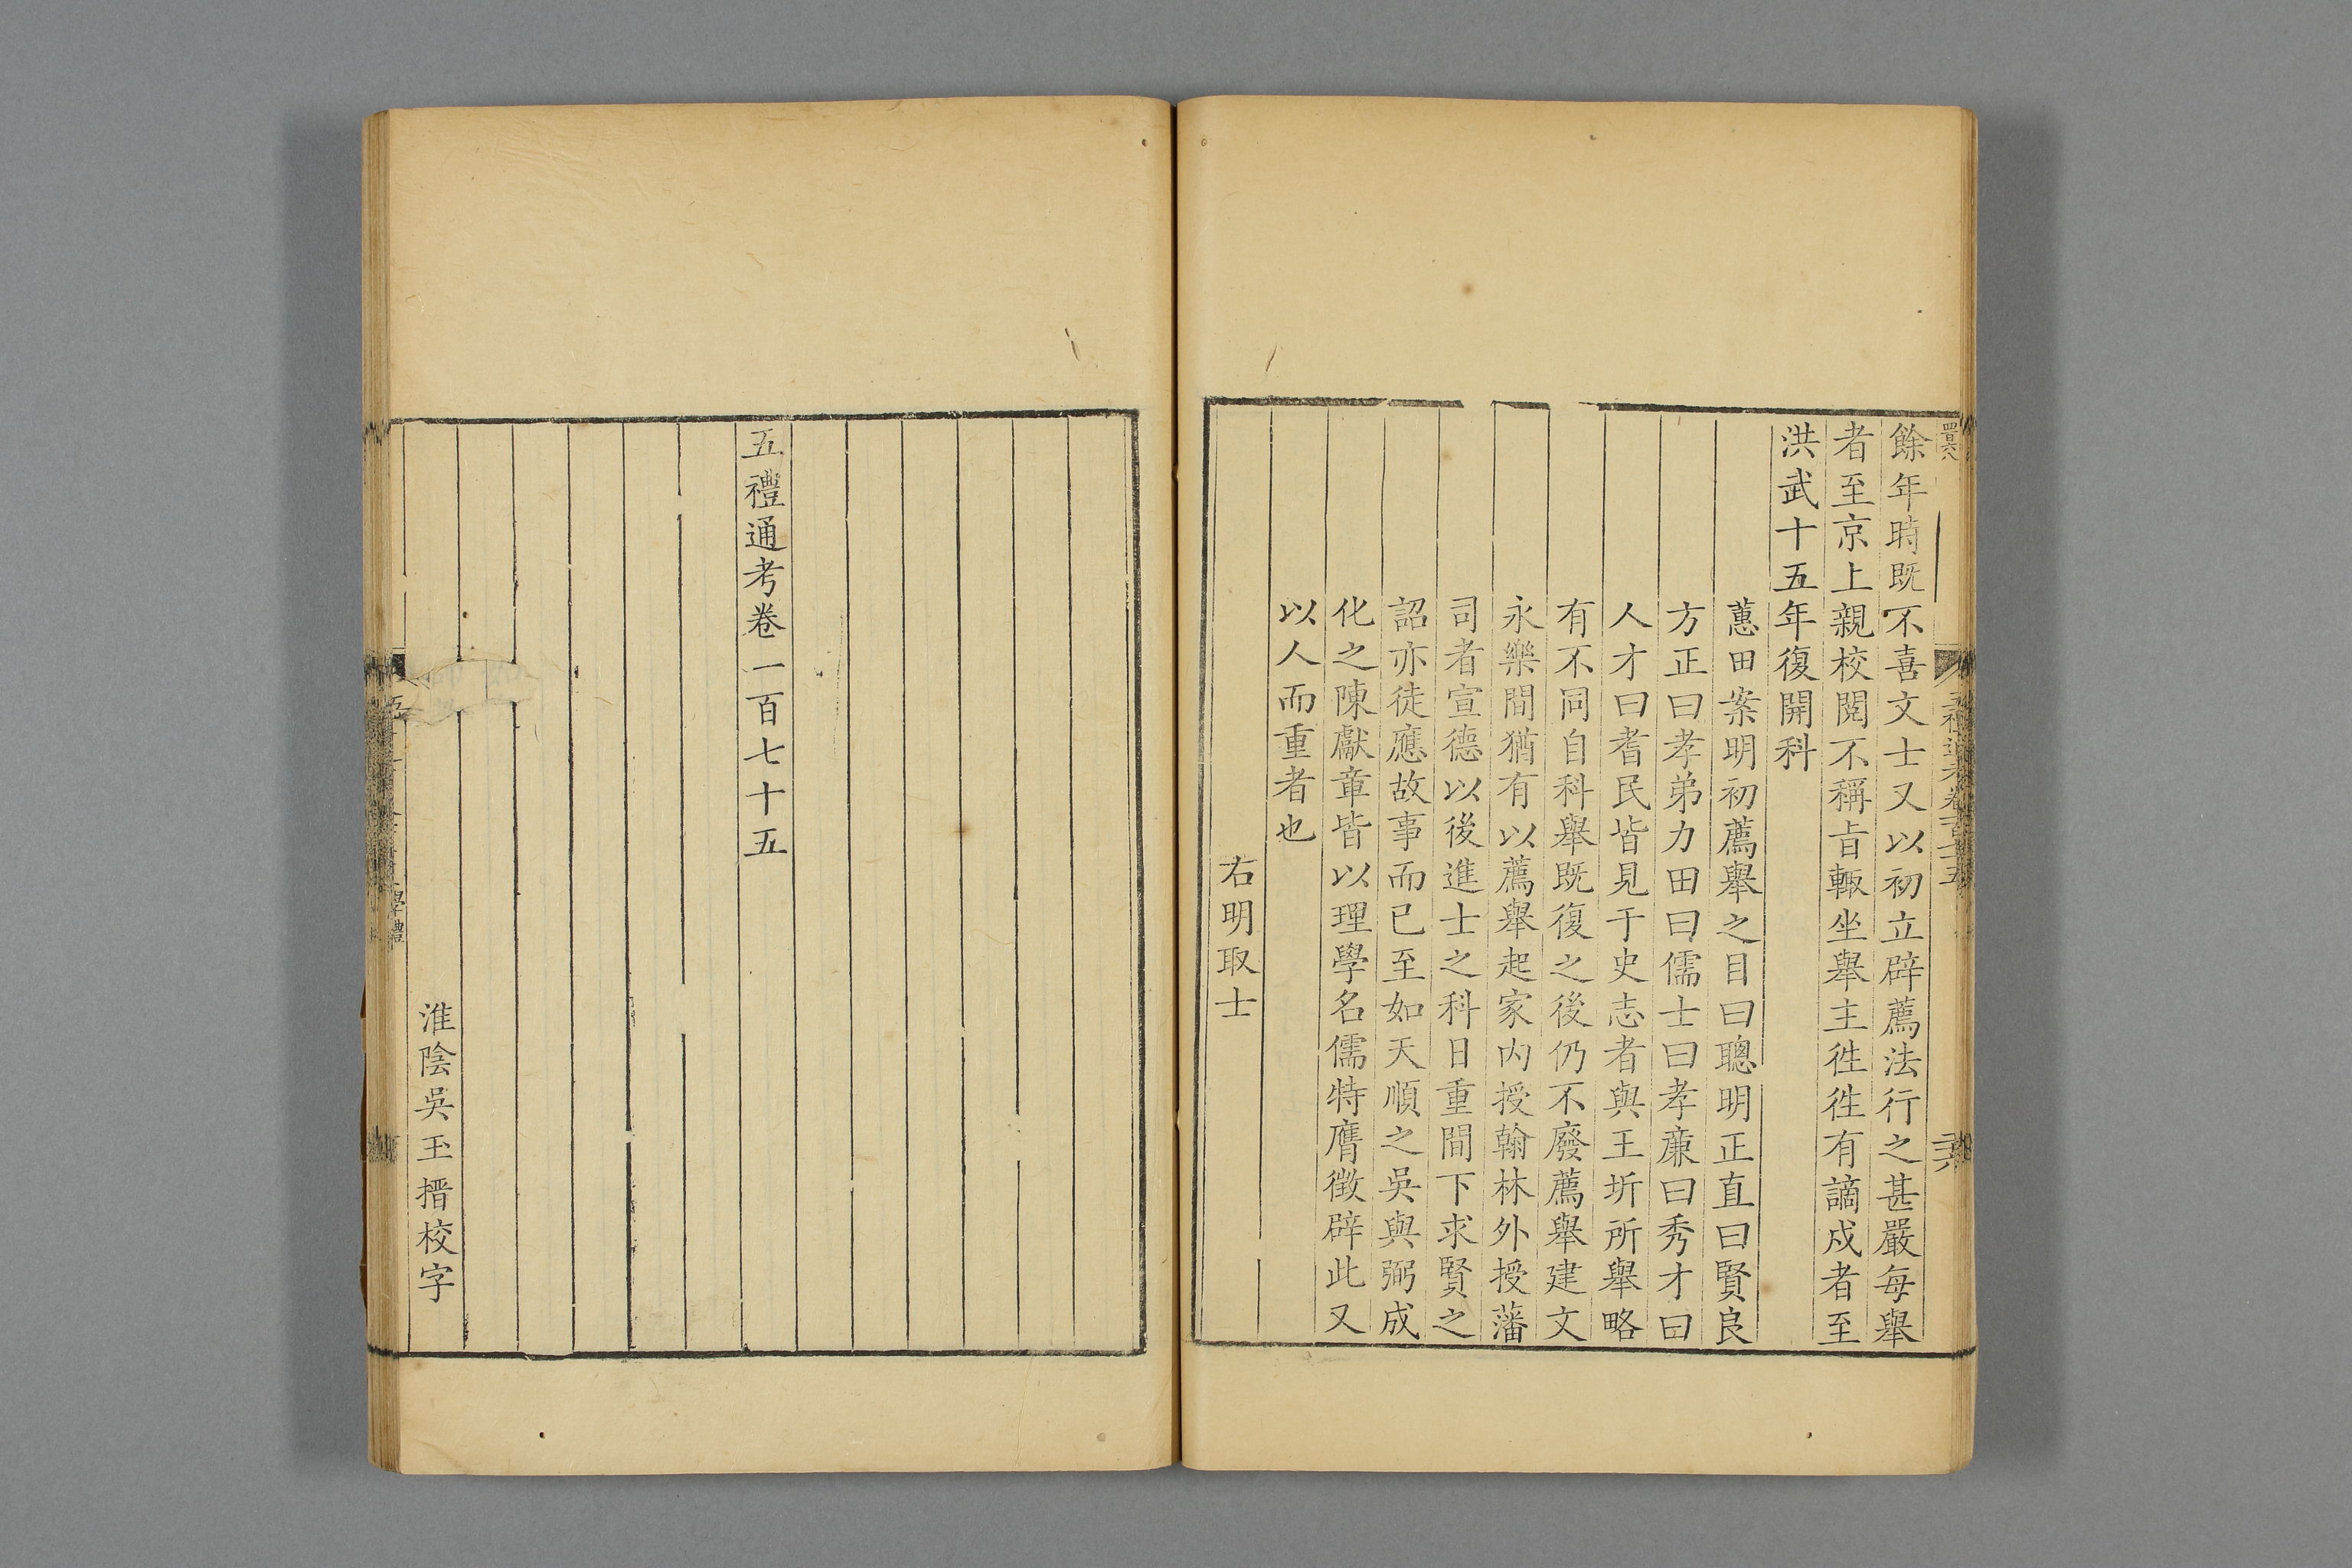 四百六八
餘年時既不喜文士又以初立辟薦法行之甚嚴每舉
者至京上親校閱不稱旨輙坐舉主徃徃有謫戍者至
洪武十五年復開科
蕙田案明初薦舉之目曰聰明正直曰賢良
方正曰孝弟力田曰儒士曰孝廉曰秀才曰
人才曰耆民皆見于史志者與王圻所舉略
有不同自科舉既復之後仍不廢薦舉建文
永樂間猶有以薦舉起家内授翰林外授藩
司者宣德以後進士之科日重間下求賢之
詔亦徒應故事而已至如天順之吳與弼成
化之陳獻章皆以理學名儒特膺徵辟此又
以人而重者也
右明取士
五禮通考卷一百七十五
淮陰吳玉搢校字
學禮